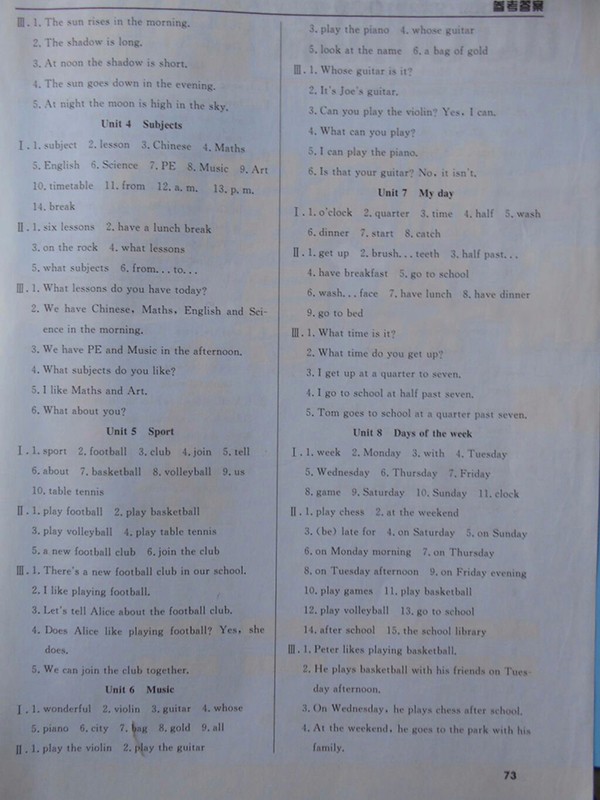 参考答案
Ⅲ. 1. The sun rises in the morning.
2. The shadow is long.
3. At noon the shadow is short.
4. The sun goes down in the evening.
5. At night the moon is high in the sky.
Unit 4 Subjects
Ⅰ. 1. subject 2. lesson 3. Chinese 4. Maths
5. English 6. Science 7. PE 8. Music 9. Art
10. timetable 11. from 12. a. m. 13. p. m.
14. break
Ⅱ. 1. six lessons 2. have a lunch break
3. on the rock 4. what lessons
5. what subjects 6. from... to...
Ⅲ. 1. What lessons do you have today?
2. We have Chinese, Maths, English and Sci-
ence in the morning.
3. We have PE and Music in the afternoon.
4. What subjects do you like?
5. I like Maths and Art.
6. What about you?
Unit 5 Sport
Ⅰ. 1. sport 2. football 3. club 4. join 5. tell
6. about 7. basketball 8. volleyball 9. us
10. table tennis
Ⅱ. 1. play football 2. play basketball
3. play volleyball 4. play table tennis
5. a new football club 6. join the club
Ⅲ. 1. There's a new football club in our school.
2. I like playing football.
3. Let's tell Alice about the football club.
4. Does Alice like playing football? Yes, she
does.
5. We can join the club together.
Unit 6 Music
Ⅰ. 1. wonderful 2. violin 3. guitar 4. whose
5. piano 6. city 7. bag 8. gold 9. all
Ⅱ. 1. play the violin 2. play the guitar
3. play the piano 4. whose guitar
5. look at the name 6. a bag of gold
Ⅲ. 1. Whose guitar is it?
2. It's Joe's guitar.
3. Can you play the violin? Yes, I can.
4. What can you play?
5. I can play the piano.
6. Is that your guitar? No, it isn't.
Unit 7 My day
Ⅰ. 1. o'clock 2. quarter 3. time 4. half 5. wash
6. dinner 7. start 8. catch
Ⅱ. 1. get up 2. brush... teeth 3. half past...
4. have breakfast 5. go to school
6. wash... face 7. have lunch 8. have dinner
9. go to bed
Ⅲ. 1. What time is it?
2. What time do you get up?
3. I get up at a quarter to seven.
4. I go to school at half past seven.
5. Tom goes to school at a quarter past seven.
Unit 8 Days of the week
Ⅰ. 1. week 2. Monday 3. with 4. Tuesday
5. Wednesday 6. Thursday 7. Friday
8. game 9. Saturday 10. Sunday 11. clock
Ⅱ. 1. play chess 2. at the weekend
3. (be) late for 4. on Saturday 5. on Sunday
6. on Monday morning 7. on Thursday
8. on Tuesday afternoon 9. on Friday evening
10. play games 11. play basketball
12. play volleyball 13. go to school
14. after school 15. the school library
Ⅲ. 1. Peter likes playing basketball.
2. He plays basketball with his friends on Tues-
day afternoon.
3. On Wednesday, he plays chess after school.
4. At the weekend, he goes to the park with his
family.
73